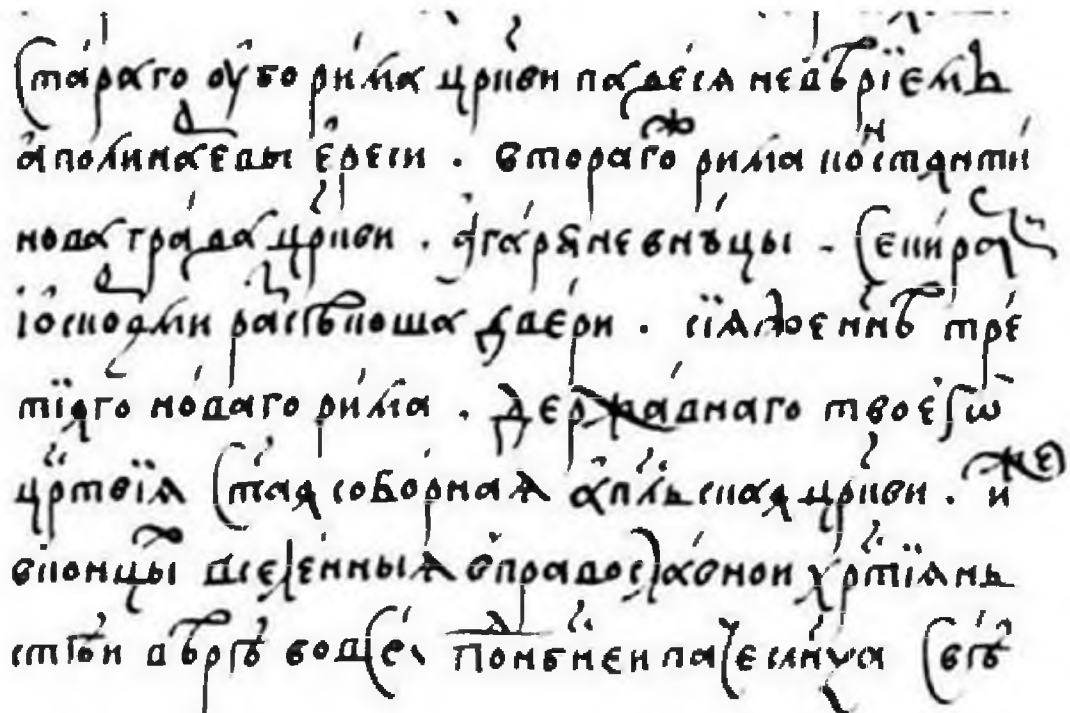 стараго оубо рима црⷭ҇кви падесѧ невѣрїемъ
аполинаревы ереси . втораго же рима костѧнти
новаграда црⷭ҇кви . агарѧне внуцы - секирами
и оскордми разсѣкоша двери . сїѧ же ннѣ тре
тїѧго новаго рима . державнаго твоегѡ
црⷭ҇твїѧ стаѧ соборнаѧ апⷭ҇льскаѧ црⷭ҇кви . иже
в концы вселенныѧ в православной хрⷭ҇тїѧнь
стѣй вѣрѣ во всей поⷣнбнеи паче слнца свѣ